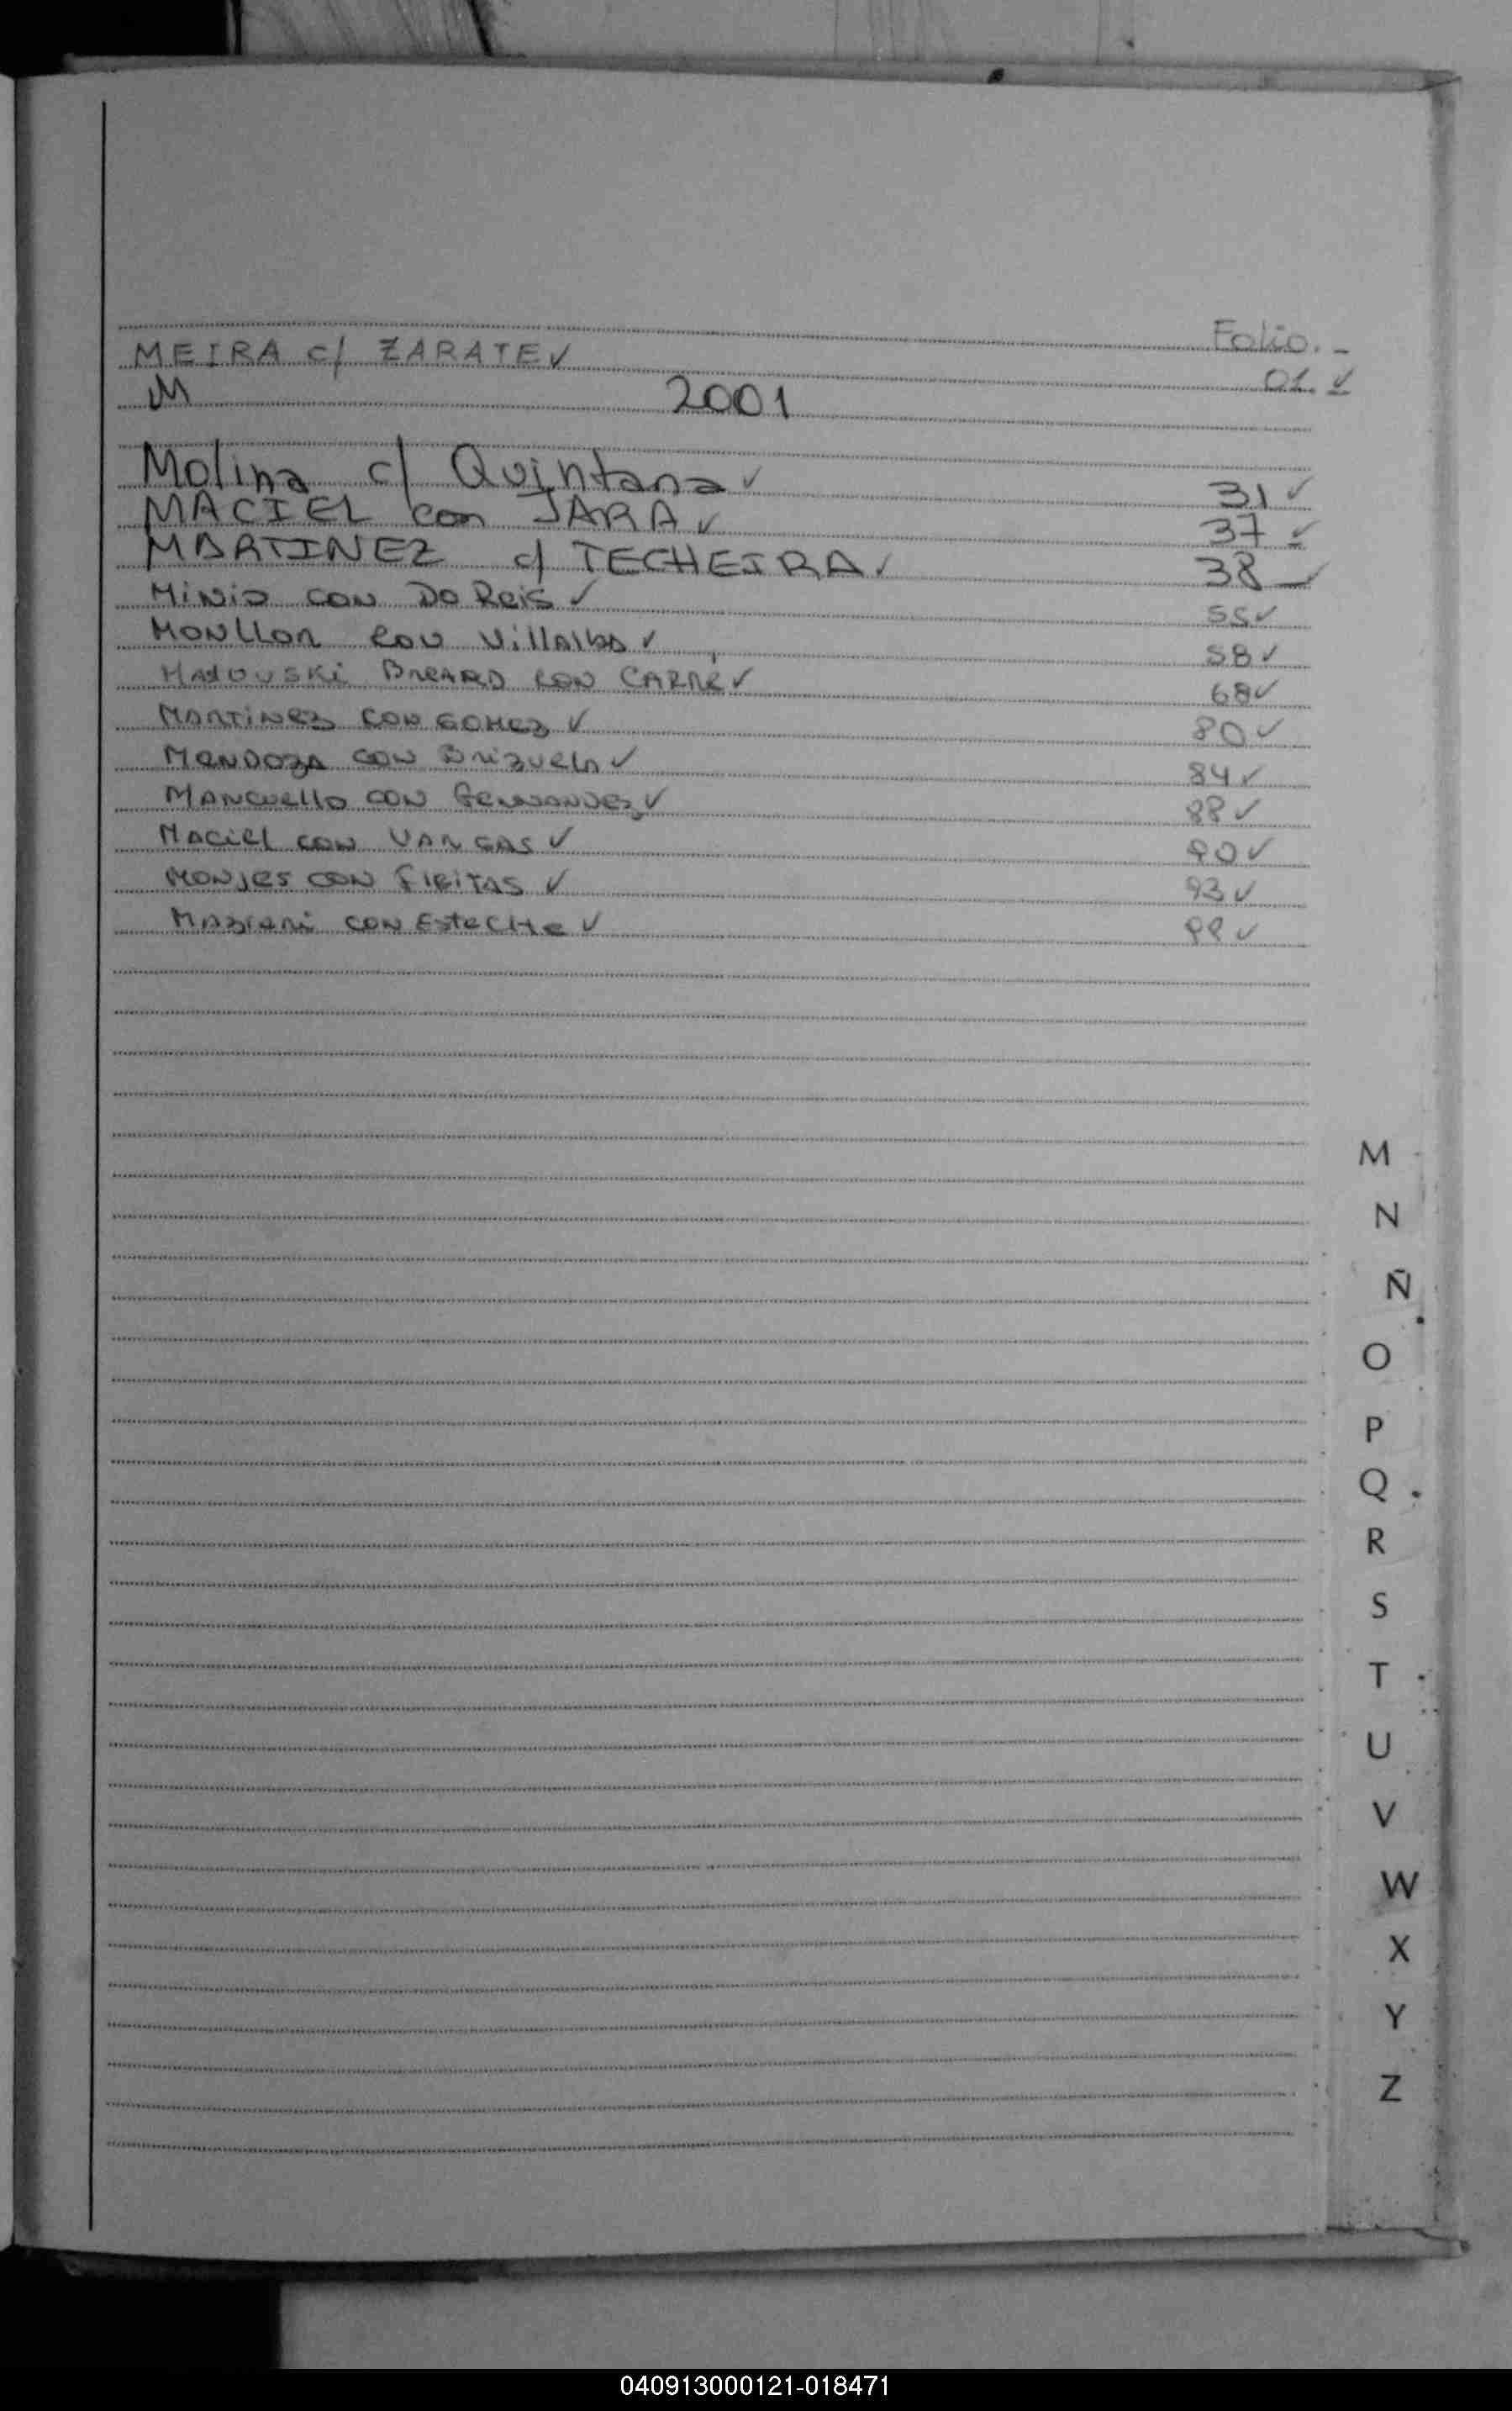 Folio.-
MEIRA c/ ZARATE ✓ 01. ✓
M 2001
Molina c/ Quintana ✓ 31 ✓
MACIEL con JARA ✓ 37 ✓
MARTINEZ c/ TECHEIRA ✓ 38 ✓
Minio con Do Reis ✓ 55 ✓
Monllor con Villalba ✓ 58 ✓
BREARD con CARRE ✓ 68 ✓
Martinez con Gomez ✓ 80 ✓
Mendoza con Brizuela ✓ 84 ✓
Mancuello con Fernandez ✓ 88 ✓
Maciel con VARGAS ✓ 90 ✓
Monjes con FLEITAS ✓ 93 ✓
con EsteCHe ✓ 99 ✓
M
N
Ñ
O
P
Q
R
S
T
U
V
W
X
Y
Z
040913000121-018471